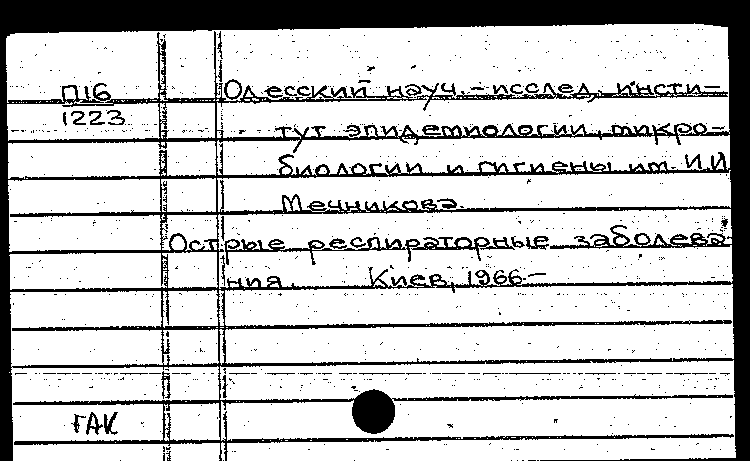 П16
1223
Одесский науч.-исслед. инсти-
тут эпидемиологии, микро-
биологии и гигиены им. И.И
Мечникова.
Острые респираторные заболева
ния. Киев, 1966-
ГАК